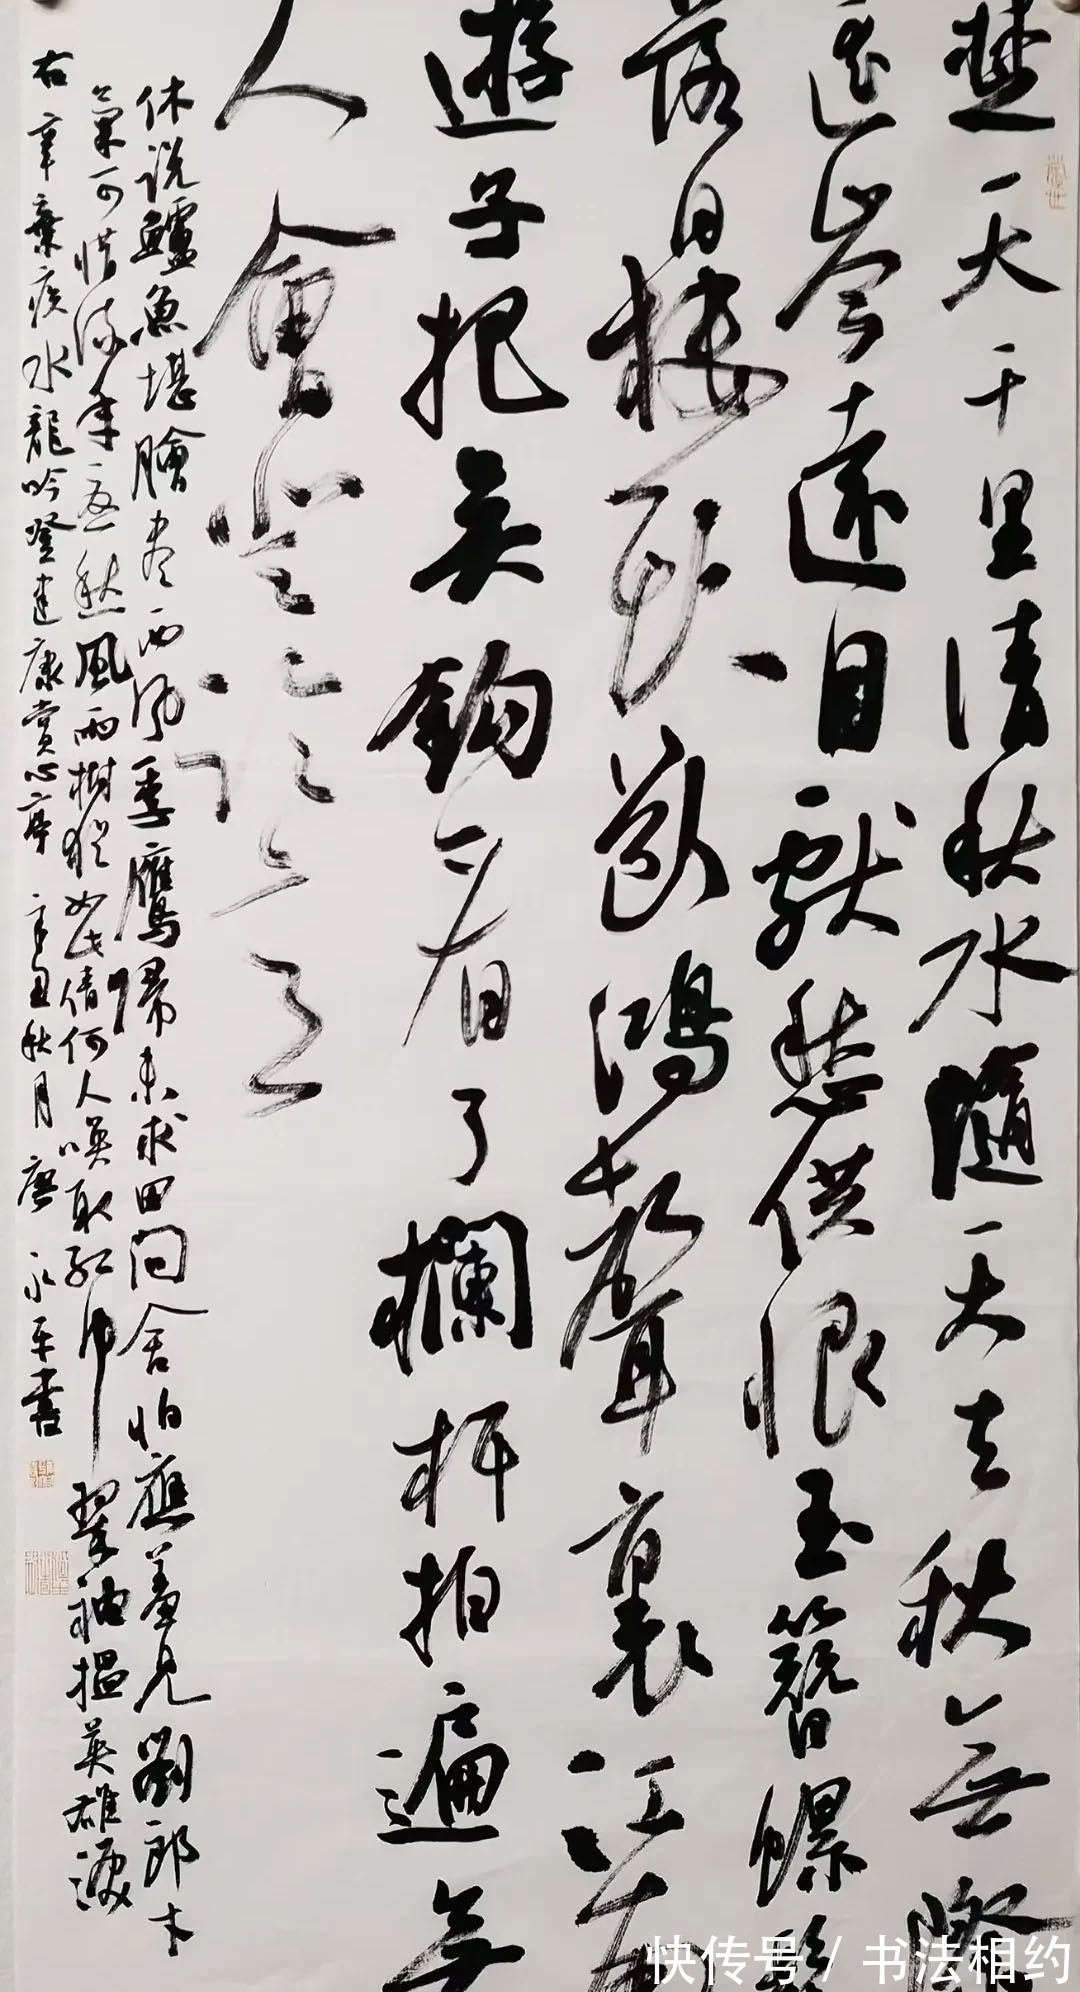 楚天千里清秋水隨天去秋無際
遥岑遠目獻愁供恨玉簪螺髻
落日樓頭斷鴻聲裏江南
遊子把吴鈎看了欄杆拍遍無
人會登臨意
休说鱸魚堪膾尽西风季鷹歸未求田问舍怕應羞見劉郎才
氣可惜流年憂愁風雨樹猶如此倩何人唤取紅巾翠袖揾英雄淚
右辛棄疾水龍吟登建康赏心亭 辛丑秋月 廖永平書
快传号 / 书法相约